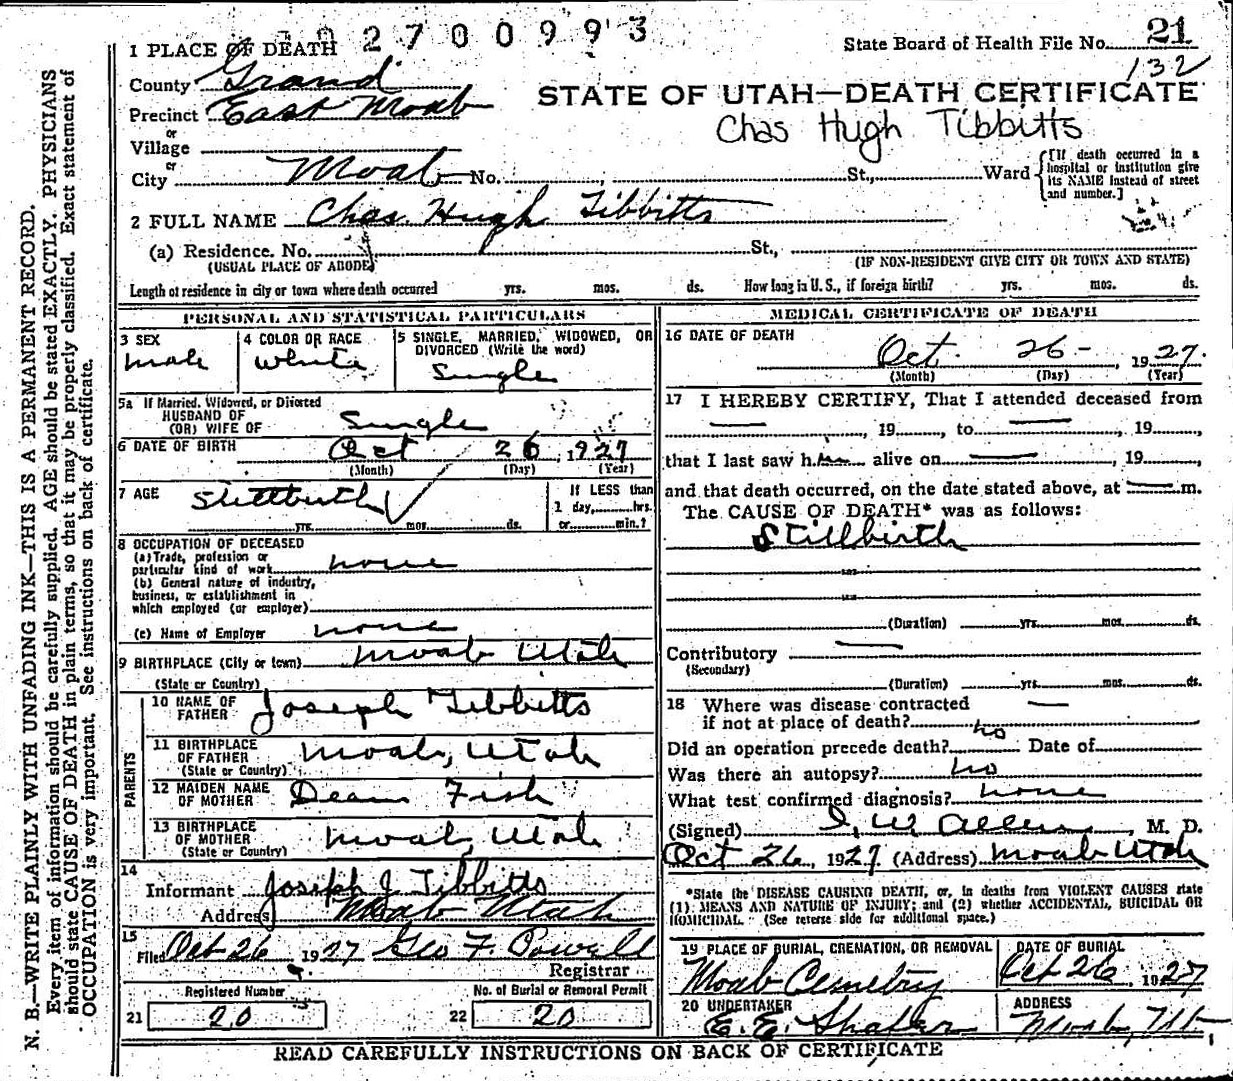 2700993
1 PLACE OF DEATH
State Board of Health File No. 21
132
County Grand
STATE OF UTAH—DEATH CERTIFICATE
Precinct East Moab
Chas Hugh Tibbitts
or
Village
or
City Moab No. St., Ward
{[If death occurred in a
hospital or institution give
its NAME instead of street
and number.]
2 FULL NAME Chas. Hugh Tibbitts
(a) Residence. No. St.,
(USUAL PLACE OF ABODE)
(IF NON-RESIDENT GIVE CITY OR TOWN AND STATE)
Length of residence in city or town where death occurred yrs. mos. ds. How long in U. S., if foreign birth? yrs. mos. ds.
PERSONAL AND STATISTICAL PARTICULARS
3 SEX
male
4 COLOR OR RACE
white
5 SINGLE, MARRIED, WIDOWED, OR
DIVORCED (Write the word)
Single
5a If Married, Widowed, or Divorced
HUSBAND OF
(OR) WIFE OF Single
6 DATE OF BIRTH Oct 26, 1927
(Month) (Day) (Year)
7 AGE Stillbirth
yrs. mos. ds.
If LESS than
1 day, hrs.
or min.?
8 OCCUPATION OF DECEASED
(a) Trade, profession or
particular kind of work none
(b) General nature of industry,
business, or establishment in
which employed (or employer)
(c) Name of Employer none
9 BIRTHPLACE (City or town) Moab Utah
(State or Country)
PARENTS
10 NAME OF
FATHER Joseph Tibbitts
11 BIRTHPLACE
OF FATHER Moab, Utah
(State or Country)
12 MAIDEN NAME
OF MOTHER Dean Fish
13 BIRTHPLACE
OF MOTHER Moab, Utah
(State or Country)
14
Informant Joseph J Tibbitts
Address Moab Utah
15
Filed Oct 26 1927 Geo F. Powell
Registrar
Registered Number
21 20
No. of Burial or Removal Permit
22 20
MEDICAL CERTIFICATE OF DEATH
16 DATE OF DEATH
Oct. 26 - , 1927.
(Month) (Day) (Year)
17 I HEREBY CERTIFY, That I attended deceased from
— , 19 , to — , 19 ,
that I last saw h alive on — , 19 ,
and that death occurred, on the date stated above, at — m.
The CAUSE OF DEATH* was as follows:
Stillbirth
(Duration) yrs. mos. ds.
Contributory —
(Secondary)
(Duration) yrs. mos. ds.
18 Where was disease contracted
if not at place of death? —
Did an operation precede death? no Date of
Was there an autopsy? no
What test confirmed diagnosis? none
(Signed) I. W. Allen, M. D.
Oct 26, 1927 (Address) Moab Utah
*State the DISEASE CAUSING DEATH, or, in deaths from VIOLENT CAUSES state
(1) MEANS AND NATURE OF INJURY; and (2) whether ACCIDENTAL, SUICIDAL OR
HOMICIDAL. (See reverse side for additional space.)
19 PLACE OF BURIAL, CREMATION, OR REMOVAL
Moab Cemetry
DATE OF BURIAL
Oct 26, 1927
20 UNDERTAKER
E. E. Shafer
ADDRESS
Moab, Ut
READ CAREFULLY INSTRUCTIONS ON BACK OF CERTIFICATE
N. B.—WRITE PLAINLY WITH UNFADING INK—THIS IS A PERMANENT RECORD.
Every item of information should be carefully supplied. AGE should be stated EXACTLY. PHYSICIANS
should state CAUSE OF DEATH in plain terms, so that it may be properly classified. Exact statement of
OCCUPATION is very important. See instructions on back of certificate.